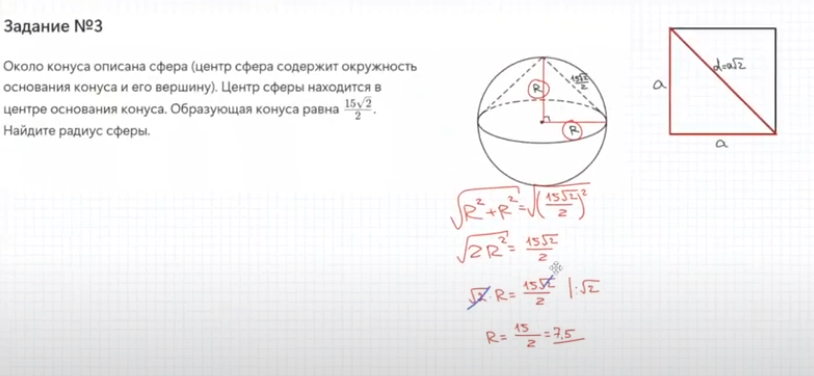 Задание №3
Около конуса описана сфера (центр сфера содержит окружность
основания конуса и его вершину). Центр сферы находится в
центре основания конуса. Образующая конуса равна 15√2/2.
Найдите радиус сферы.
15√2/2
R
R
a
d=a√2
a
√(R²+R²) = √((15√2/2)²)
√(2R²) = 15√2/2
√2·R = 15√2/2 |:√2
R = 15/2 = 7,5